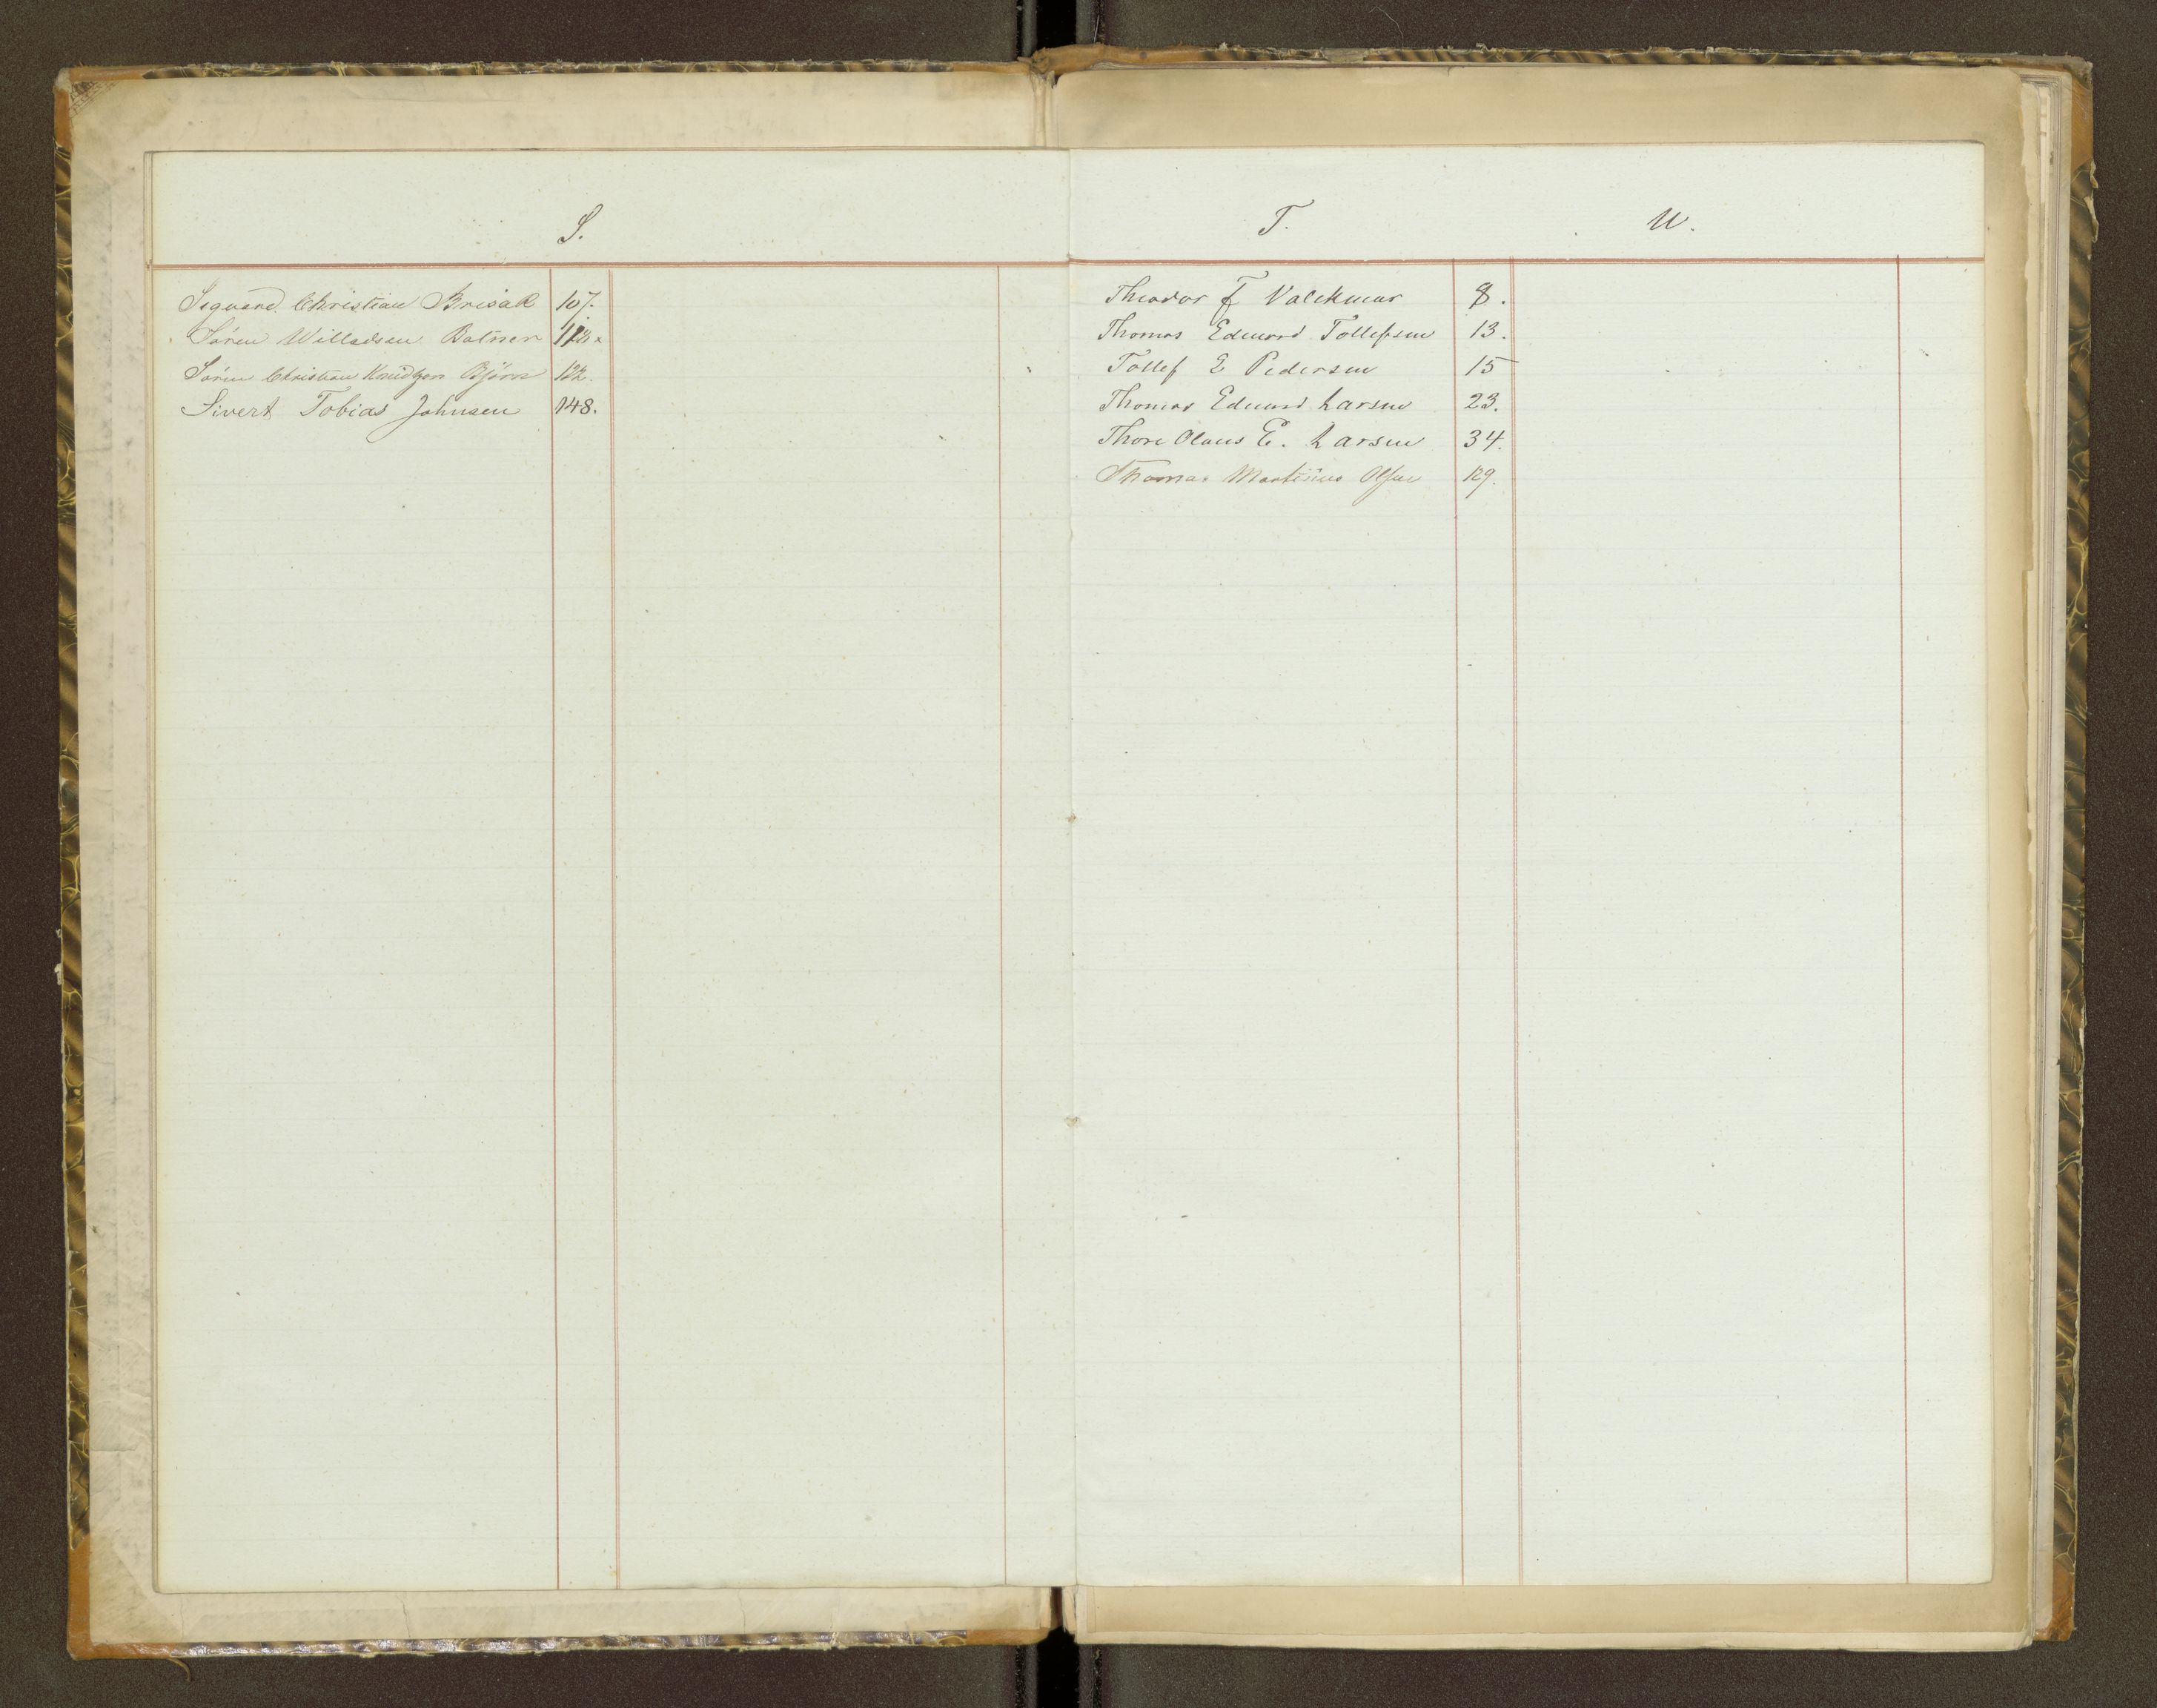 S.
Sigvard Christian Brisak 107.
Sören Willadsen Batner
Sören Christian Knudtzon Björn 122.
Sivert Tobias Johnsen 148.
T.
Theodor F Valckmar 8.
Thomas Edvard Tollefsen 13.
Tollef E Pedersen 15
Thomas Edvard Larsen 23.
Thore Olaus E. Larsen 34.
Thomas Martinius Olsen 129.
U.